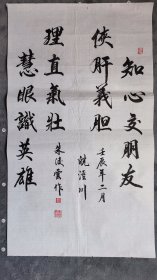 知心交朋友
侠肝義胆
理直氣壯
慧眼識英雄
壬辰年二月
朱後雲作